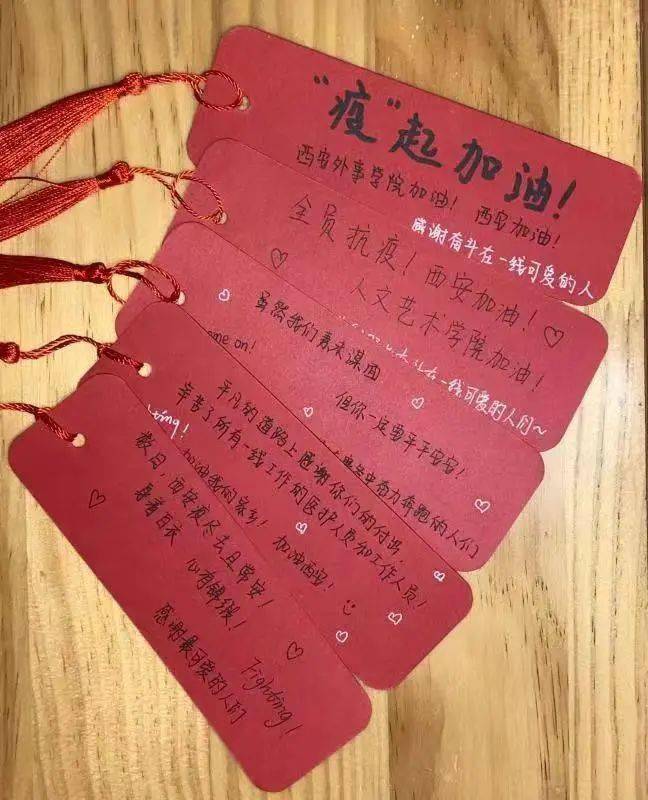 “疫”起加油!
西安外事学院加油! 西安加油!
感谢奋斗在一线可爱的人
全员抗疫! 西安加油!
人文艺术学院加油!
在一线可爱的人们~
虽然我们素未谋面
ome on!
但你一定要平平安安!
奋力奔跑的人们
平凡的道路上感谢你们的付出,
辛苦了所有一线工作的医护人员和工作人员!
我的家乡! 加油西安!
ting!
数日,西安疫尽去且常安!
着百衣 心有锦缎!
感谢最可爱的人们
Fighting!